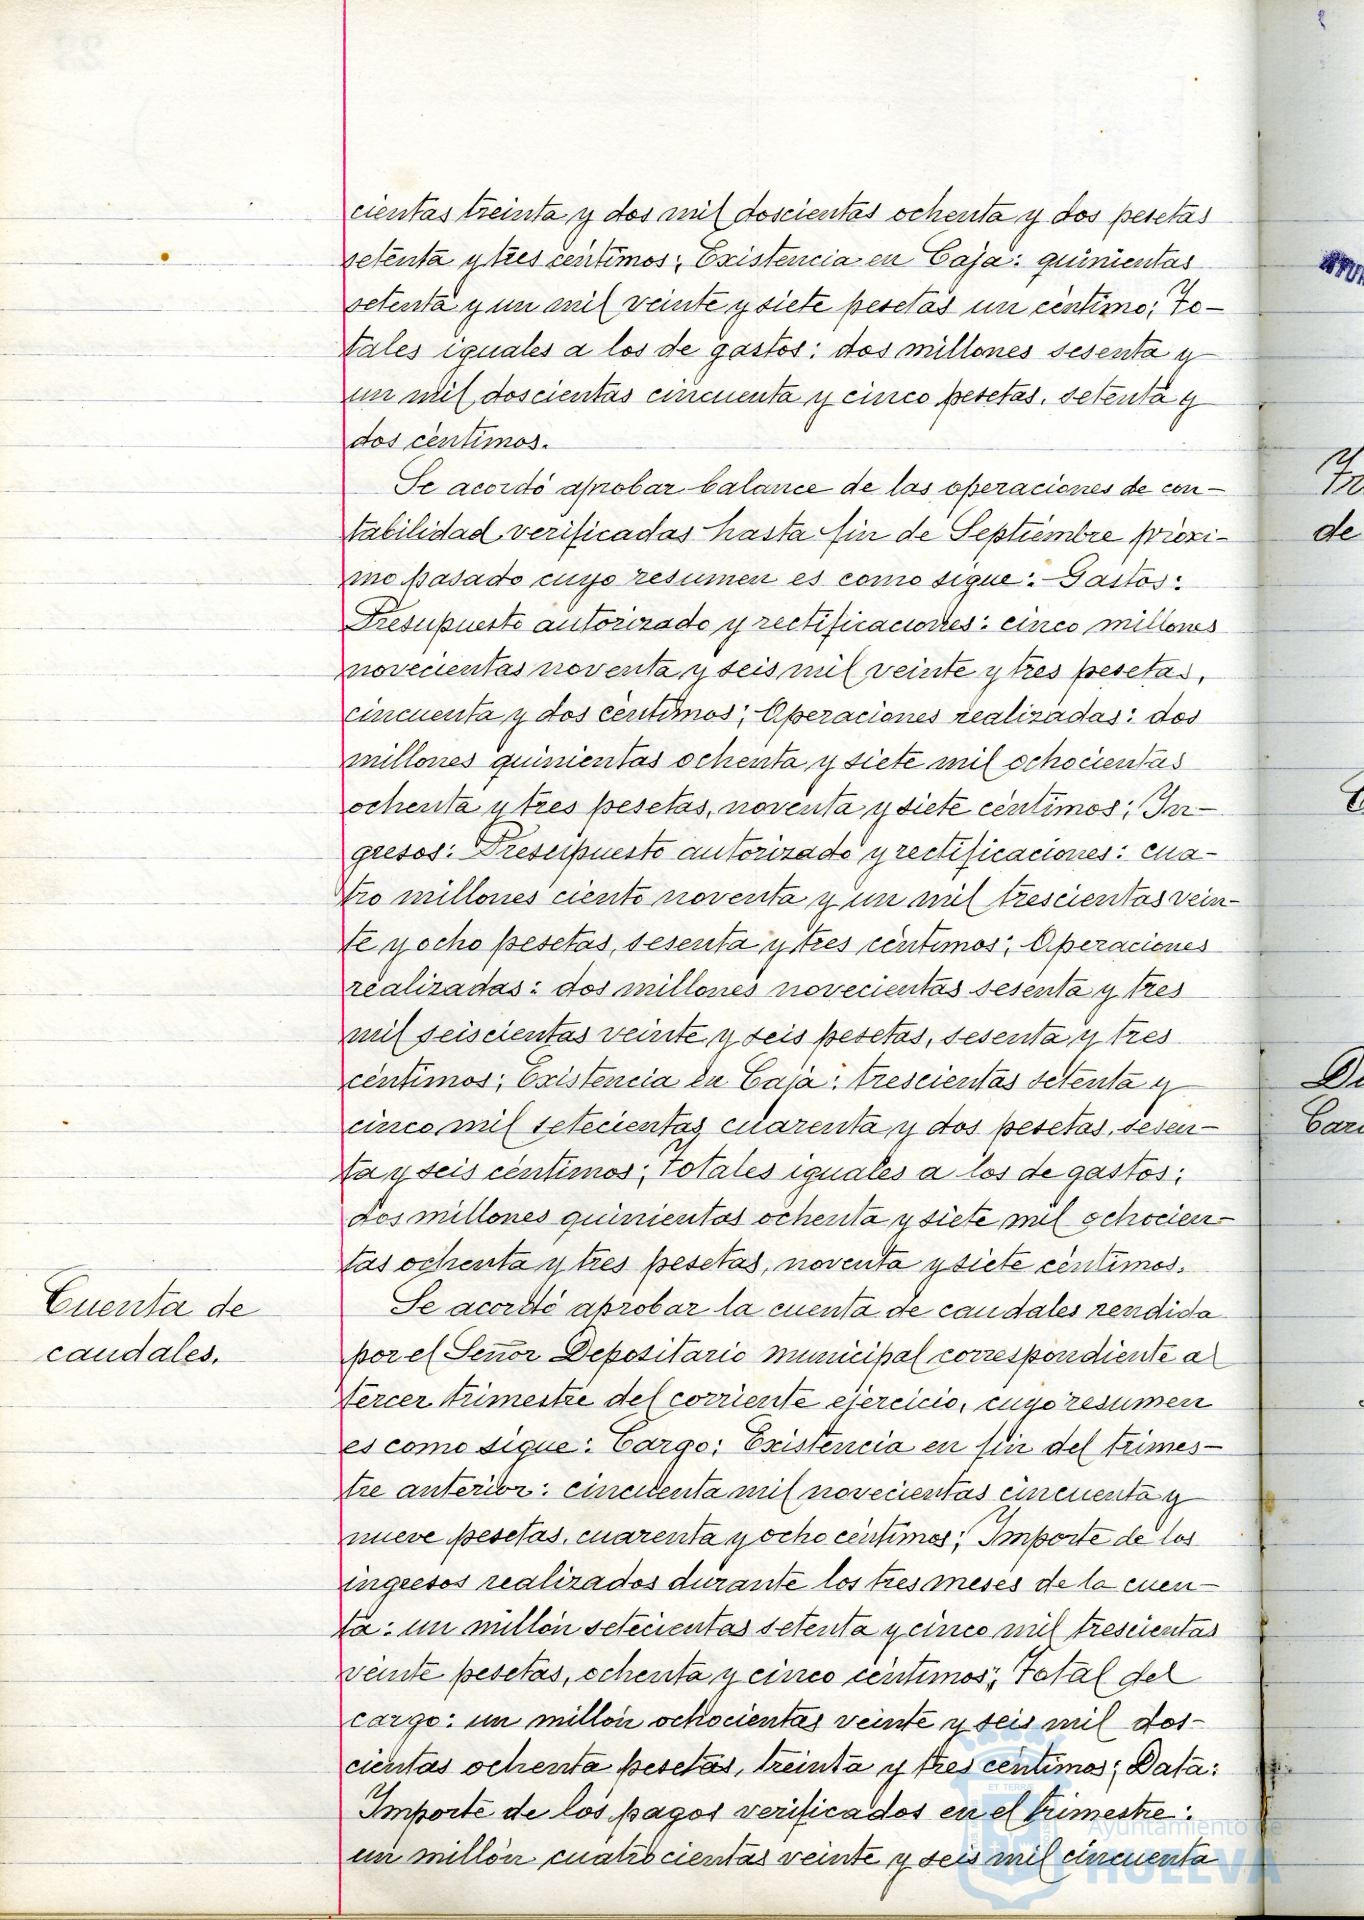 cientas treinta y dos mil doscientas ochenta y dos pesetas
setenta y tres céntimos; Existencia en Caja: quinientas
setenta y un mil veinte y siete pesetas un céntimo; To-
tales iguales a los de gastos: dos millones sesenta y
un mil doscientas cincuenta y cinco pesetas, setenta y
dos céntimos.
Se acordó aprobar balance de las operaciones de con-
tabilidad verificadas hasta fin de Septiembre próxi-
mo pasado cuyo resumen es como sigue: Gastos:
Presupuesto autorizado y rectificaciones: cinco millones
novecientas noventa y seis mil veinte y tres pesetas,
cincuenta y dos céntimos; Operaciones realizadas: dos
millones quinientas ochenta y siete mil ochocientas
ochenta y tres pesetas, noventa y siete céntimos; In-
gresos: Presupuesto autorizado y rectificaciones: cua-
tro millones ciento noventa y un mil trescientas vein-
te y ocho pesetas, sesenta y tres céntimos; Operaciones
realizadas: dos millones novecientas sesenta y tres
mil seiscientas veinte y seis pesetas, sesenta y tres
céntimos; Existencia en Caja: trescientas setenta y
cinco mil setecientas cuarenta y dos pesetas, sesen-
ta y seis céntimos; Totales iguales a los de gastos:
dos millones quinientas ochenta y siete mil ochocien-
tas ochenta y tres pesetas, noventa y siete céntimos.
Cuenta de
caudales.
Se acordó aprobar la cuenta de caudales rendida
por el Señor Depositario municipal correspondiente al
tercer trimestre del corriente ejercicio, cuyo resumen
es como sigue: Cargo: Existencia en fin del trimes-
tre anterior: cincuenta mil novecientas cincuenta y
nueve pesetas, cuarenta y ocho céntimos; Importe de los
ingresos realizados durante los tres meses de la cuen-
ta: un millón setecientas setenta y cinco mil trescientas
veinte pesetas, ochenta y cinco céntimos; Total del
cargo: un millón ochocientas veinte y seis mil dos-
cientas ochenta pesetas, treinta y tres céntimos; Data:
Importe de los pagos verificados en el trimestre:
un millón cuatrocientas veinte y seis mil cincuenta
Ayuntamiento de
HUELVA